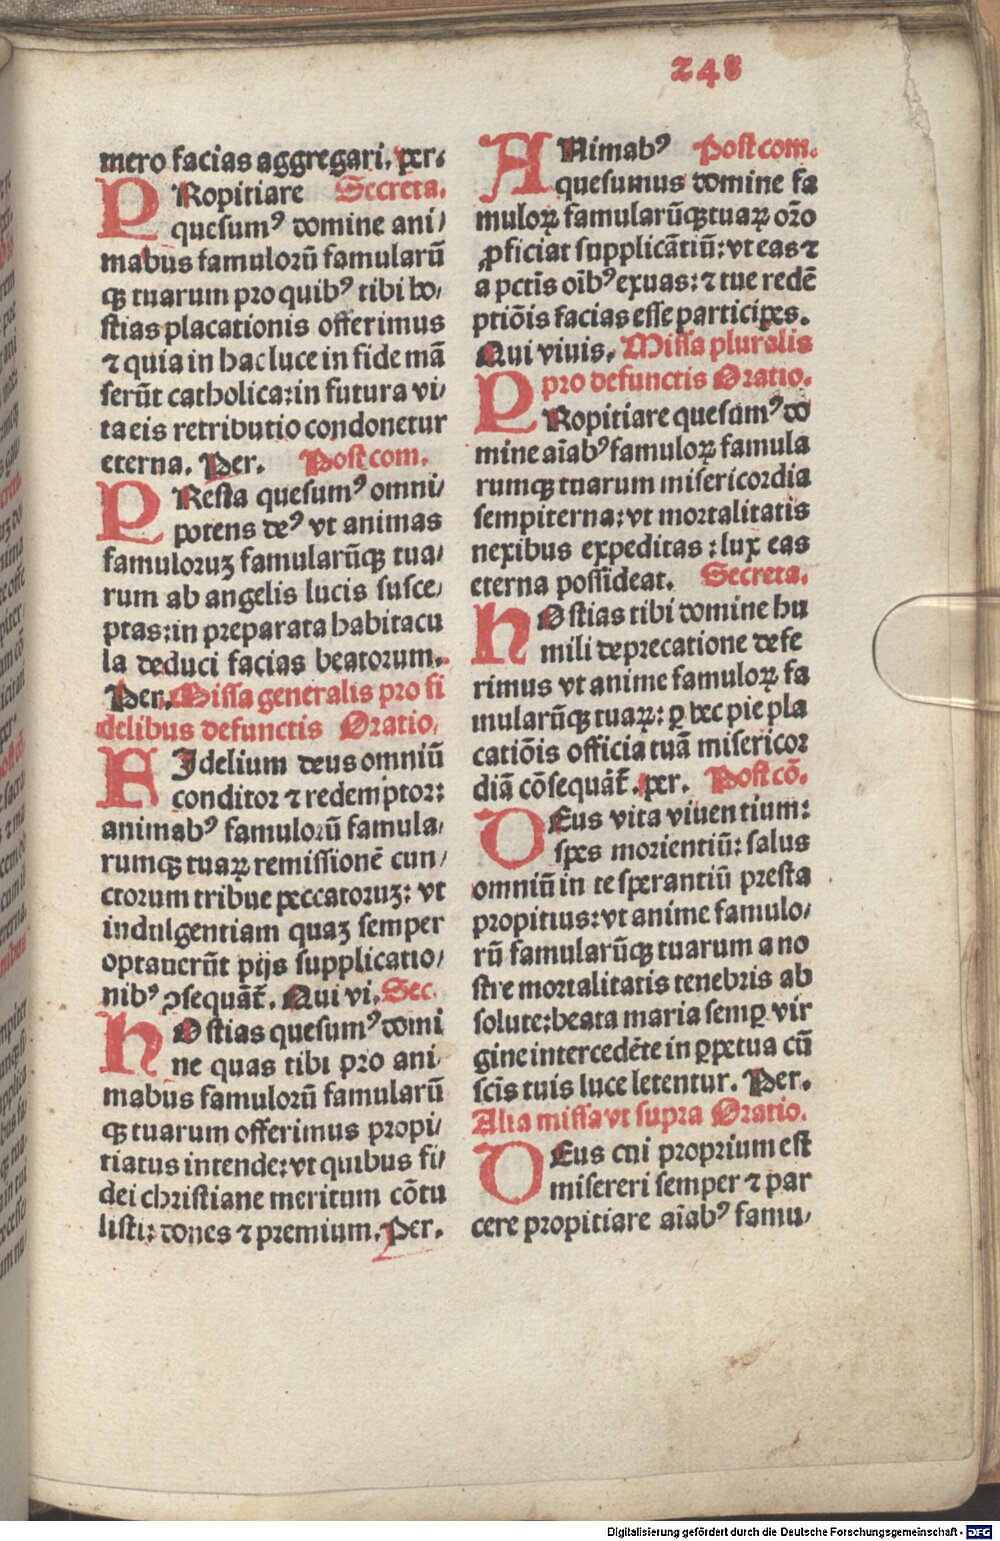 248
mero facias aggregari. per.
PRopitiare Secreta.
quesumꝰ domine ani/
mabus famulorū famularū
qꝫ tuarum pro quibꝰ tibi ho/
stias placationis offerimus
⁊ quia in hac luce in fide mā
serūt catholica: in futura vi/
ta eis retributio condonetur
eterna. Per. Postcom.
PResta quesumꝰ omni/
potens deꝰ vt animas
famuloruꝫ famularūqꝫ tua/
rum ab angelis lucis susce/
ptas: in preparata habitacu
la deduci facias beatorum.
Per. Missa generalis pro fi
delibus defunctis Oratio.
FIdelium deus omniū
conditor ⁊ redemptor:
animabꝰ famulorū famula/
rumqꝫ tuaꝝ remissionē cun/
ctorum tribue peccatoruꝫ: vt
indulgentiam quaꝫ semper
optauerūt pijs supplicatio/
nibꝰ ꝯsequāt̄. Qui vi. Sec.
HOstias quesumꝰ domi
ne quas tibi pro ani/
mabus famulorū famularū
qꝫ tuarum offerimus propi/
tiatus intende: vt quibus fi/
dei christiane meritum cōtu
listi: dones ⁊ premium. Per.
ANimabꝰ Postcom.
quesumus domine fa
muloꝝ famularūqꝫ tuaꝝ orō
ꝓficiat supplicātiū: vt eas ⁊
a pctīs oībꝰ exuas: ⁊ tue redē
ptiōis facias esse participes.
Qui viuis. Missa pluralis
pro defunctis Oratio.
PRopitiare quesumꝰ do
mine aīabꝰ famuloꝝ famula
rumqꝫ tuarum misericordia
sempiterna: vt mortalitatis
nexibus expeditas: lux eas
eterna possideat. Secreta.
HOstias tibi domine hu
mili deprecatione defe
rimus vt anime famuloꝝ fa
mularūqꝫ tuaꝝ: ꝑ hec pie pla
catiōis officia tuā misericor
diā cōsequāt̄. per. Postcō.
DEus vita viuentium:
spes morientiū: salus
omniū in te sperantiū presta
propitius: vt anime famulo/
rū famularūqꝫ tuarum a no
stre mortalitatis tenebris ab
solute: beata maria semꝑ vir
gine intercedēte in ꝑpetua cū
scīs tuis luce letentur. Per.
Alia missa vt supra Oratio.
DEus cui proprium est
misereri semper ⁊ par
cere propitiare aīabꝰ famu/
Digitalisierung gefördert durch die Deutsche Forschungsgemeinschaft - DFG